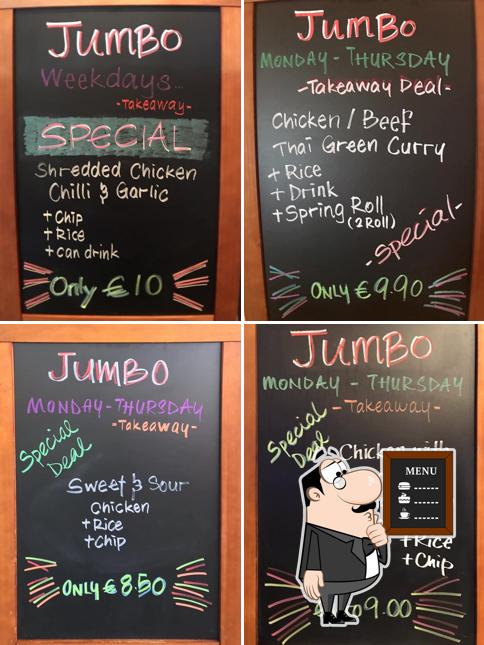 JUMBO
Weekdays...
-Takeaway-
SPECIAL
Shredded Chicken
Chilli & Garlic
+ Chip
+ Rice
+ can drink
Only € 10
JUMBO
MONDAY - THURSDAY
-Takeaway Deal-
Chicken / Beef
Thai Green Curry
+ Rice
+ Drink
+ Spring Roll
(2 Roll)
-Special-
ONLY € 9.90
JUMBO
MONDAY - THURSDAY
-Takeaway-
Special
Deal
Sweet & Sour
Chicken
+ Rice
+ Chip
ONLY € 8.50
JUMBO
MONDAY - THURSDAY
-Takeaway-
Special
Deal
Chicken with
MENU
+ Rice
+ Chip
9.00